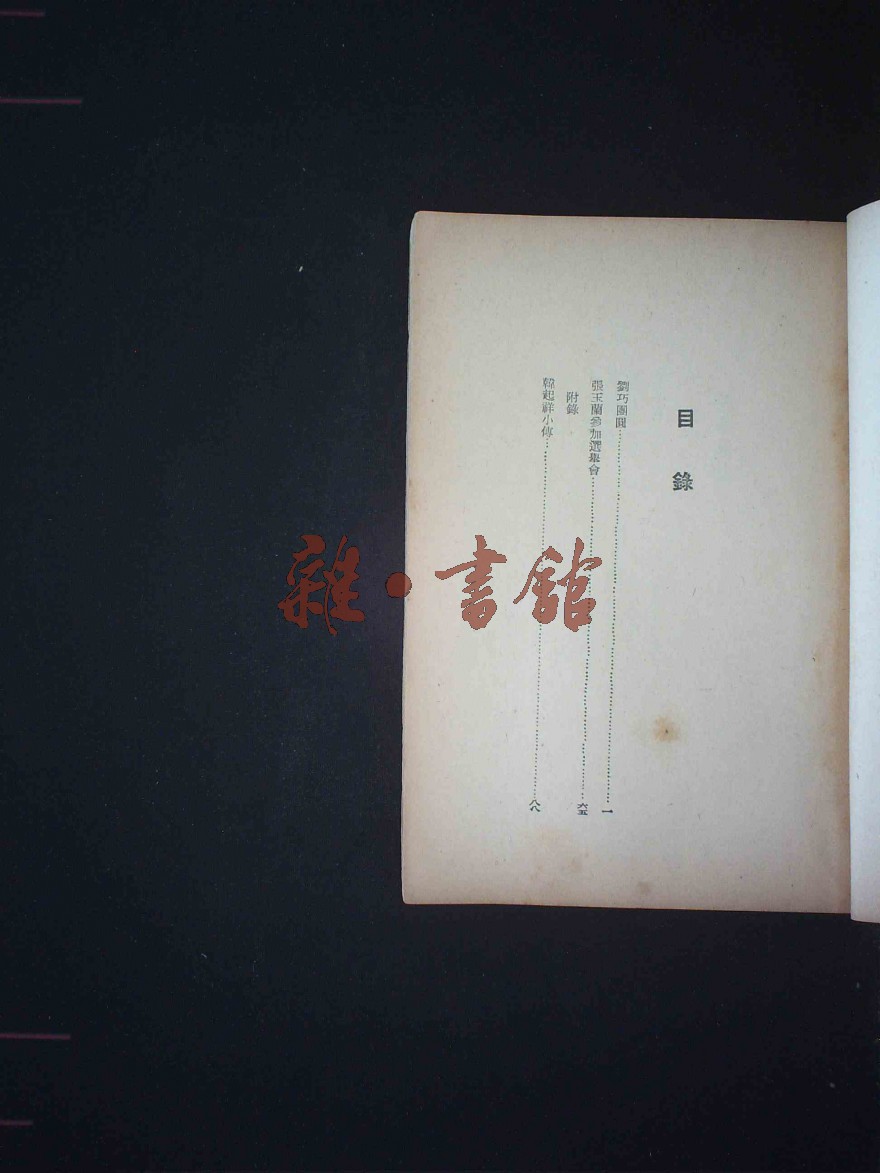 目錄
劉巧團圓……一
張玉蘭參加選舉會……六五
附錄
韓起祥小傳……八八
雜·書館